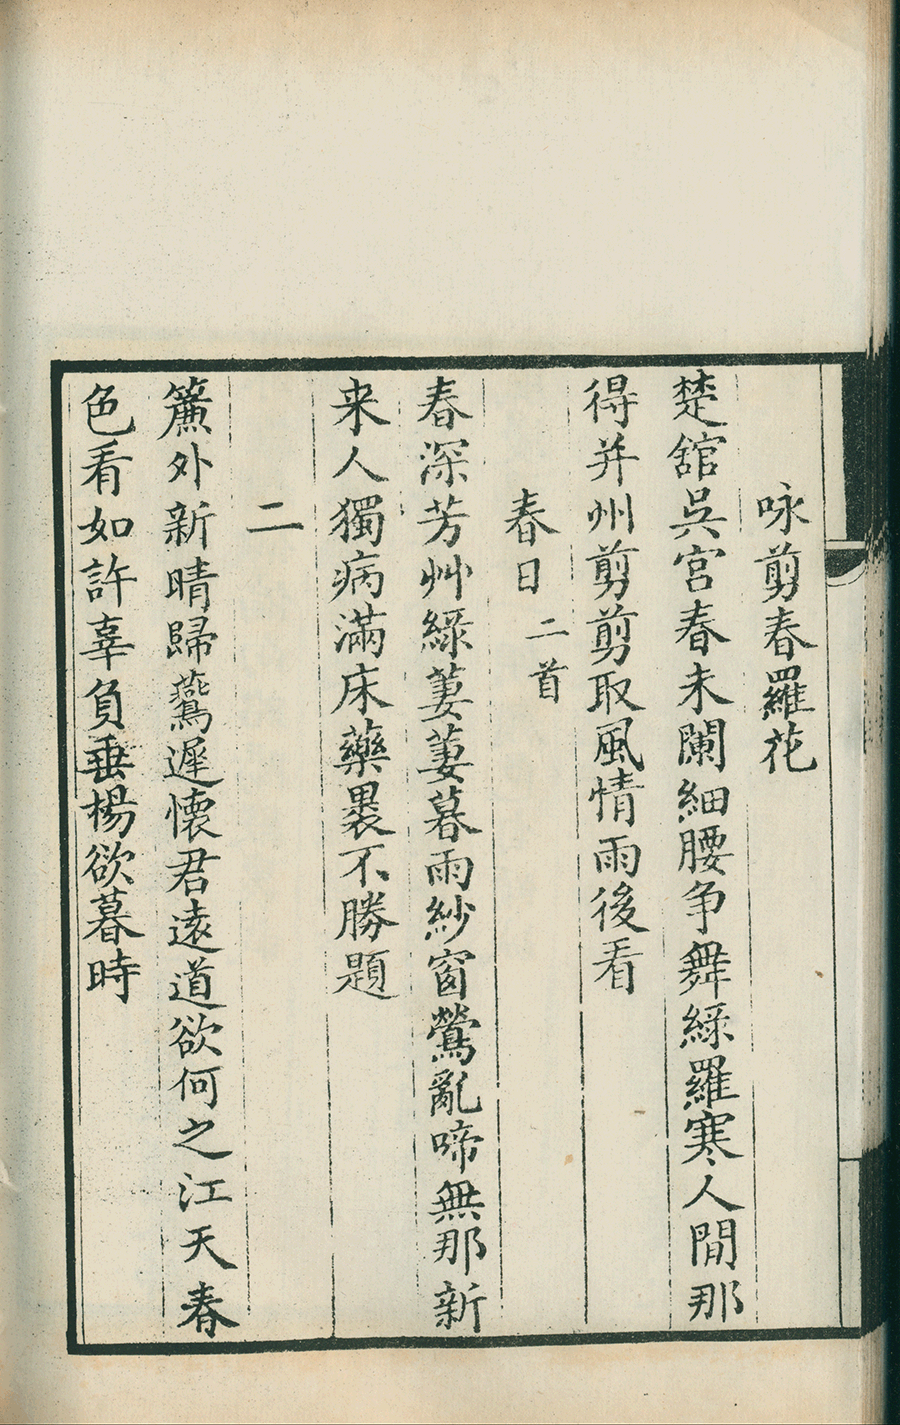 咏剪春羅花
楚舘吳宮春未闌細腰争舞綠羅寒人間那
得并州剪剪取風情雨後看
春日二首
春深芳艸綠萋萋暮雨紗窗鶯亂啼無那新
来人獨病滿床藥裹不勝題
二
簾外新晴歸鷰遲懷君遠道欲何之江天春
色看如許辜負垂楊欲暮時